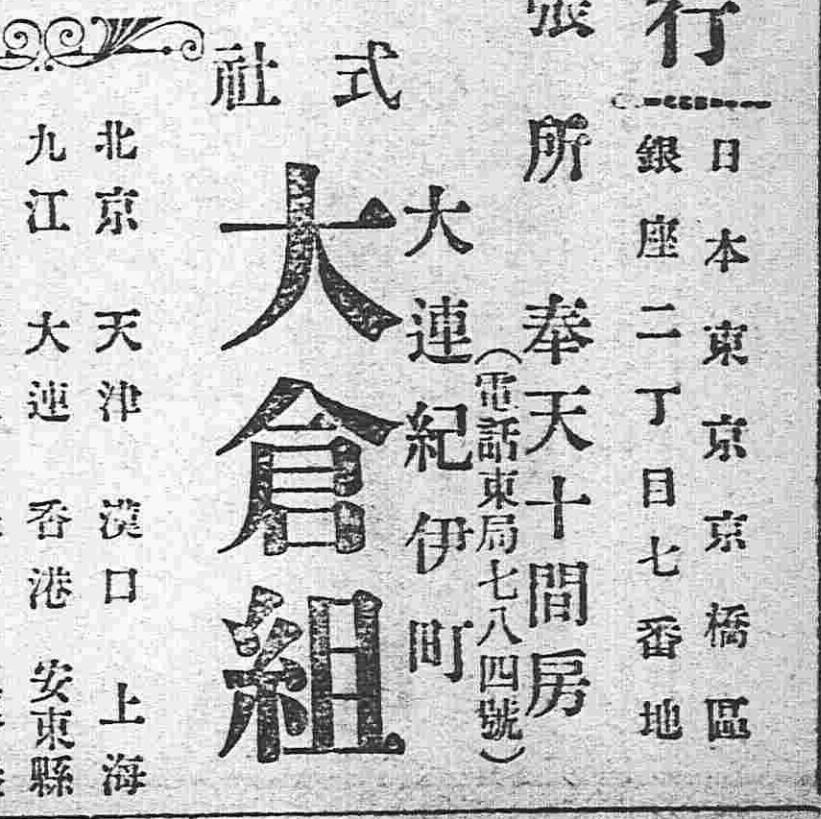 行
日本東京京橋區
銀座二丁目七番地
張所 奉天十間房
(電話東局七八四號)
大連紀伊町
式社
大倉組
北京 天津 漢口 上海
九江 大連 香港 安東縣